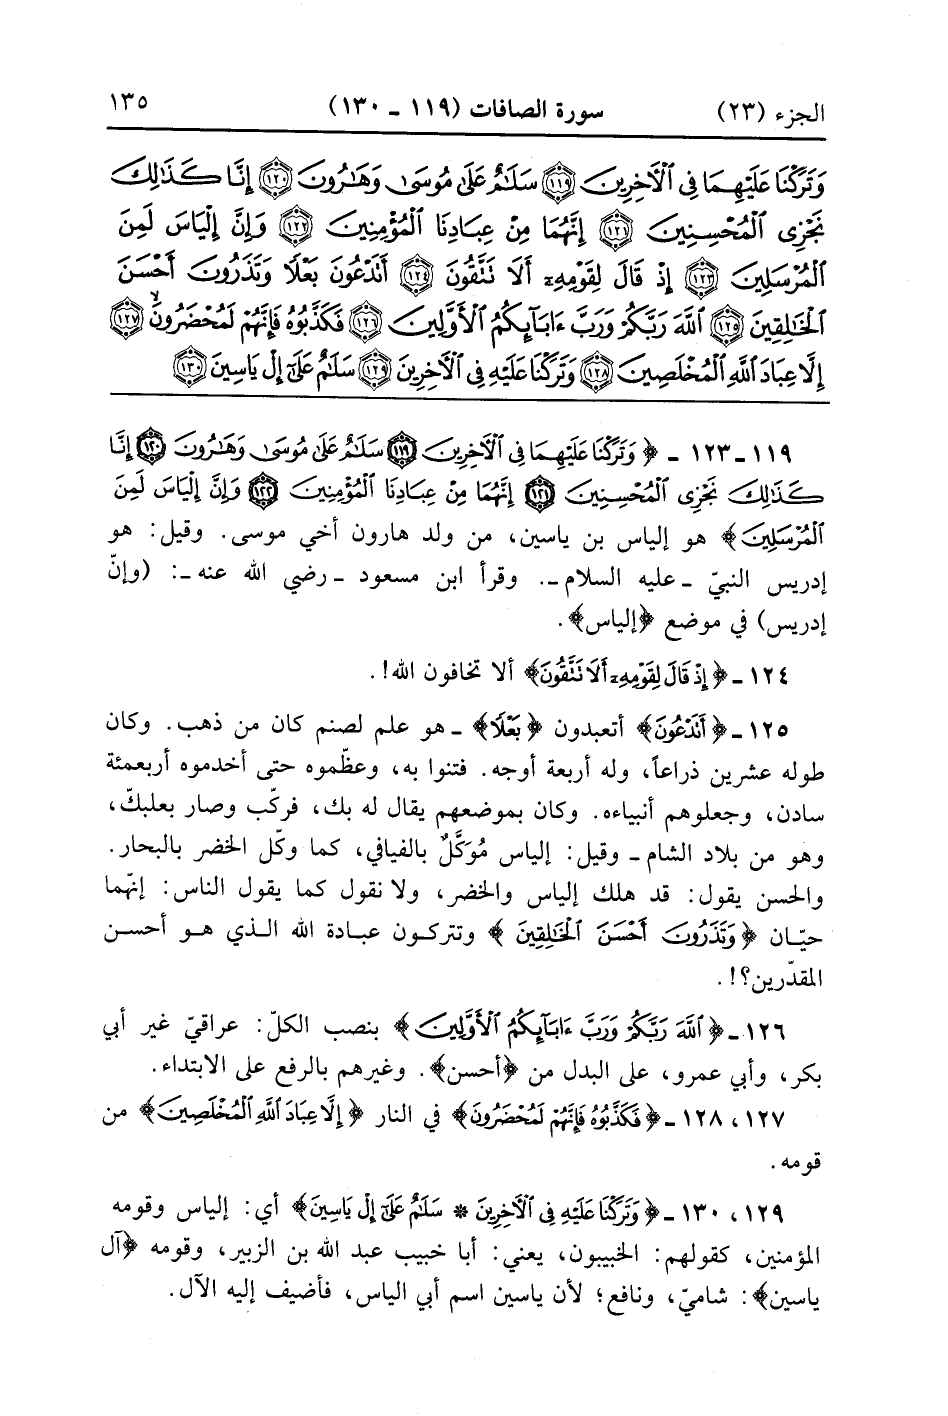 الجزء (٢٣) سورة الصافات (١١٩ - ١٣٠) ١٣٥
وَتَرَكْنَا عَلَيْهِمَا فِى ٱلْأَخِرِينَ ١١٩ سَلَٰمٌ عَلَىٰ مُوسَىٰ وَهَٰرُونَ ١٢٠ إِنَّا كَذَٰلِكَ
نَجْزِى ٱلْمُحْسِنِينَ ١٢١ إِنَّهُمَا مِنْ عِبَادِنَا ٱلْمُؤْمِنِينَ ١٢٢ وَإِنَّ إِلْيَاسَ لَمِنَ
ٱلْمُرْسَلِينَ ١٢٣ إِذْ قَالَ لِقَوْمِهِۦٓ أَلَا تَتَّقُونَ ١٢٤ أَتَدْعُونَ بَعْلًا وَتَذَرُونَ أَحْسَنَ
ٱلْخَٰلِقِينَ ١٢٥ ٱللَّهَ رَبَّكُمْ وَرَبَّ ءَابَآئِكُمُ ٱلْأَوَّلِينَ ١٢٦ فَكَذَّبُوهُ فَإِنَّهُمْ لَمُحْضَرُونَ ١٢٧
إِلَّا عِبَادَ ٱللَّهِ ٱلْمُخْلَصِينَ ١٢٨ وَتَرَكْنَا عَلَيْهِ فِى ٱلْأَخِرِينَ ١٢٩ سَلَٰمٌ عَلَىٰٓ إِلْ يَاسِينَ ١٣٠
١١٩-١٢٣ - ﴿ وَتَرَكْنَا عَلَيْهِمَا فِى ٱلْأَخِرِينَ ١١٩ سَلَٰمٌ عَلَىٰ مُوسَىٰ وَهَٰرُونَ ١٢٠ إِنَّا
كَذَٰلِكَ نَجْزِى ٱلْمُحْسِنِينَ ١٢١ إِنَّهُمَا مِنْ عِبَادِنَا ٱلْمُؤْمِنِينَ ١٢٢ وَإِنَّ إِلْيَاسَ لَمِنَ
ٱلْمُرْسَلِينَ﴾ هو إلياس بن ياسين، من ولد هارون أخي موسى. وقيل: هو
إدريس النبيّ - عليه السلام -. وقرأ ابن مسعود - رضي الله عنه -: (وإنّ
إدريس) في موضع ﴿إلياس﴾.
١٢٤ - ﴿إِذْ قَالَ لِقَوْمِهِۦٓ أَلَا تَتَّقُونَ﴾ ألا تخافون الله!.
١٢٥ - ﴿أَتَدْعُونَ﴾ أتعبدون ﴿بَعْلًا﴾ - هو علم لصنم كان من ذهب. وكان
طوله عشرين ذراعاً، وله أربعة أوجه. فتنوا به، وعظّموه حتى أخدموه أربعمئة
سادن، وجعلوهم أنبياءه. وكان بموضعهم يقال له بك، فركّب وصار بعلبكّ،
وهو من بلاد الشام - وقيل: إلياس مُوَكَّلٌ بالفيافي، كما وكّل الخضر بالبحار.
والحسن يقول: قد هلك إلياس والخضر، ولا نقول كما يقول الناس: إنّهما
حيّان ﴿وَتَذَرُونَ أَحْسَنَ ٱلْخَٰلِقِينَ ﴾ وتتركون عبادة الله الذي هو أحسن
المقدّرين؟!.
١٢٦ - ﴿ٱللَّهَ رَبَّكُمْ وَرَبَّ ءَابَآئِكُمُ ٱلْأَوَّلِينَ﴾ بنصب الكلّ: عراقيّ غير أبي
بكر، وأبي عمرو، على البدل من ﴿أحسن﴾. وغيرهم بالرفع على الابتداء.
١٢٧، ١٢٨ - ﴿فَكَذَّبُوهُ فَإِنَّهُمْ لَمُحْضَرُونَ﴾ في النار ﴿إِلَّا عِبَادَ ٱللَّهِ ٱلْمُخْلَصِينَ﴾ من
قومه.
١٢٩، ١٣٠ - ﴿وَتَرَكْنَا عَلَيْهِ فِى ٱلْأَخِرِينَ * سَلَٰمٌ عَلَىٰٓ إِلْ يَاسِينَ﴾ أي: إلياس وقومه
المؤمنين، كقولهم: الخبيبون، يعني: أبا خبيب عبد الله بن الزبير، وقومه ﴿آل
ياسين﴾: شاميّ، ونافع؛ لأن ياسين اسم أبي الياس، فأضيف إليه الآل.